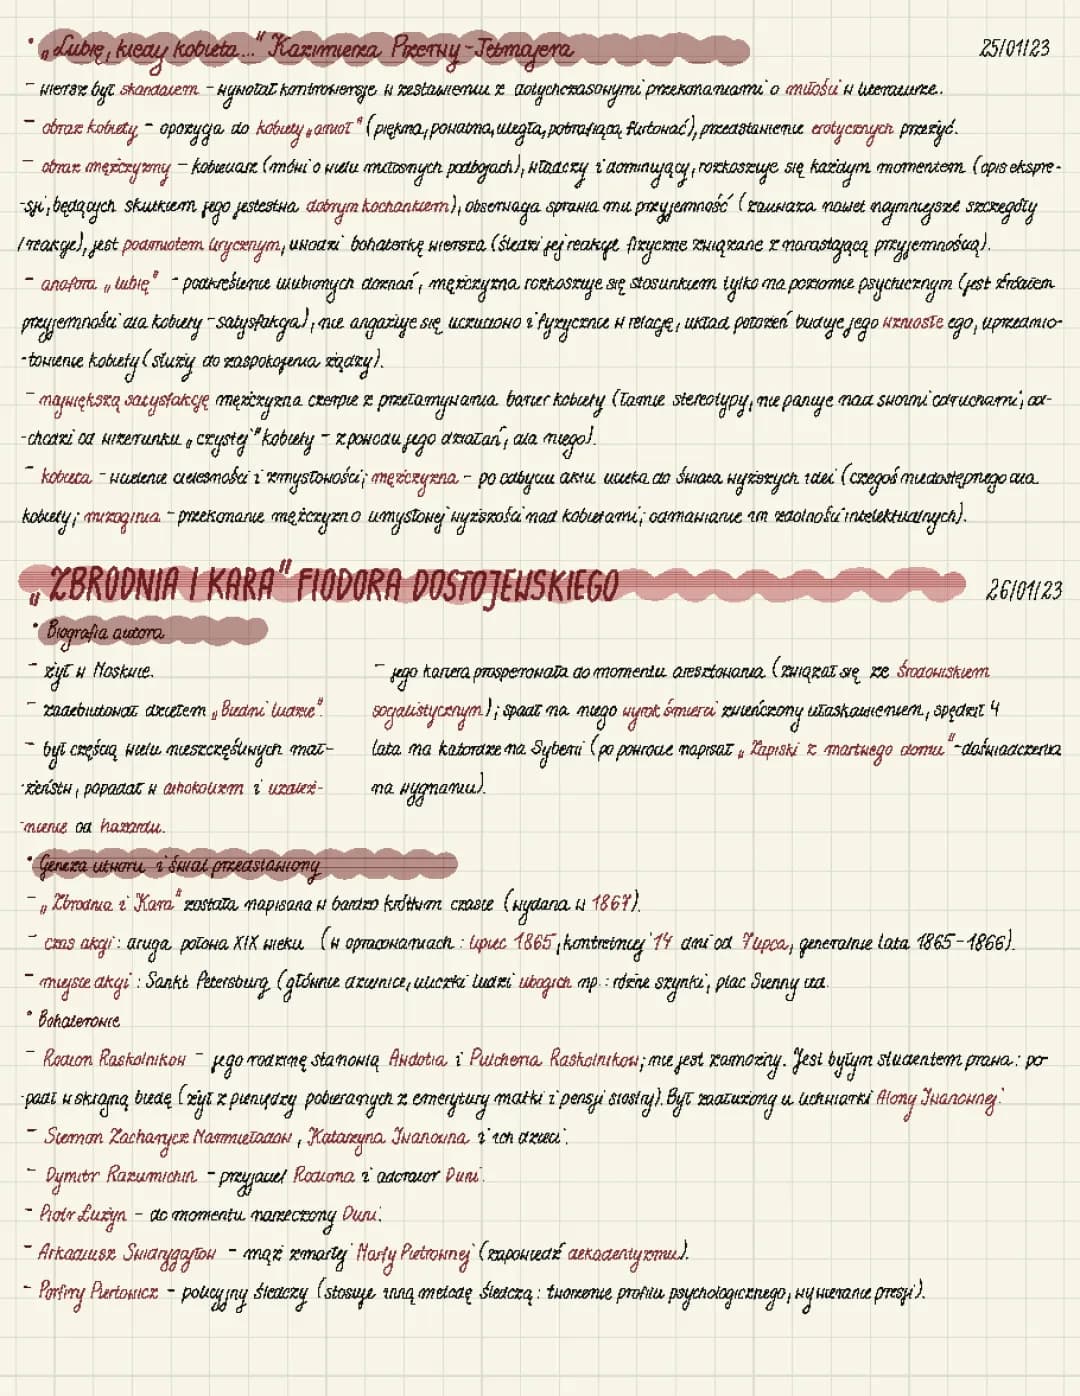 • „Lubię, kiedy kobieta..." Kazimierza Przerwy-Tetmajera
25/01/23
- wiersz był skandalem - wywołał kontrowersje w zestawieniu z dotychczasowymi przekonaniami o miłości w literaturze.
- obraz kobiety - opozycja do kobiety „anioł" (piękna, powabna, uległa, potrafiąca flirtować), przedstawienie erotycznych przeżyć.
- obraz mężczyzny - kobieciarz (mówi o wielu miłosnych podbojach), władczy i dominujący, rozkoszuje się każdym momentem (opis ekspre-
-sji, będących skutkiem jego jestestwa dobrym kochankiem), obserwacja sprawia mu przyjemność (zauważa nawet najmniejsze szczegóły
/reakcje), jest podmiotem lirycznym, uwodzi bohaterkę wiersza (śledzi jej reakcje fizyczne związane z narastającą przyjemnością).
- anafora „lubię" - podkreślenie ulubionych doznań, mężczyzna rozkoszuje się stosunkiem tylko na poziomie psychicznym (jest źródłem
przyjemności dla kobiety - satysfakcja), nie angażuje się uczuciowo i fizycznie w relację, układ położeń buduje jego wzniosłe ego, uprzedmio-
-towienie kobiety (służy do zaspokojenia żądzy).
- największą satysfakcję mężczyzna czerpie z przełamywania barier kobiety (łamie stereotypy, nie panuje nad swoimi odruchami, od-
-chodzi od wizerunku „czystej" kobiety - z powodu jego działań, dla niego).
- kobieta - wcielenie cielesności i zmysłowości; mężczyzna - po odbyciu aktu ucieka do świata wyższych idei (czegoś niedostępnego dla
kobiety; mizoginia - przekonanie mężczyzn o umysłowej wyższości nad kobietami; odmawianie im zdolności intelektualnych).
„ZBRODNIA I KARA" FIODORA DOSTOJEWSKIEGO
26/01/23
• Biografia autora
- żył w Moskwie.
- zadebiutował dziełem „Biedni ludzie".
- był częścią wielu nieszczęśliwych mał-
-żeństw, popadał w alkoholizm i uzależ-
-nienie od hazardu.
- jego kariera prosperowała do momentu aresztowania (związał się ze środowiskiem
socjalistycznym); spadł na niego wyrok śmierci zwieńczony ułaskawieniem, spędził 4
lata na katordze na Syberii (po powrocie napisał „Zapiski z martwego domu" - doświadczenia
na wygnaniu).
• Geneza utworu i świat przedstawiony
- „Zbrodnia i Kara" została napisana w bardzo krótkim czasie (wydana w 1867).
- czas akcji: druga połowa XIX wieku (w opracowaniach: lipiec 1865, kontretniej 14 dni od 7 lipca, generalnie lata 1865-1866).
- miejsce akcji: Sankt Petersburg (głównie dzielnice, uliczki ludzi ubogich np.: różne szynki, plac Sienny itd.
• Bohaterowie
- Rodion Raskolnikow - jego rodzinę stanowią Awdotia i Pulcheria Raskolnikow; nie jest zamożny. Jest byłym studentem prawa: po-
-padł w skrajną biedę (żył z pieniędzy pobieranych z emerytury matki i pensji siostry). Był zadłużony u lichwiarki Alony Iwanownej.
- Siemion Zacharycz Marmieładow, Katarzyna Iwanowna i ich dzieci.
- Dymitr Razumichin - przyjaciel Rodiona i adorator Duni.
- Piotr Łużyn - do momentu narzeczony Duni.
- Arkadiusz Swidrygajłow - mąż zmarłej Marfy Pietrownej (zapowiedź dekadentyzmu).
- Porfiry Piertowicz - policyjny śledczy (stosuje inną metodę śledczą: tworzenie profilu psychologicznego, wywieranie presji).